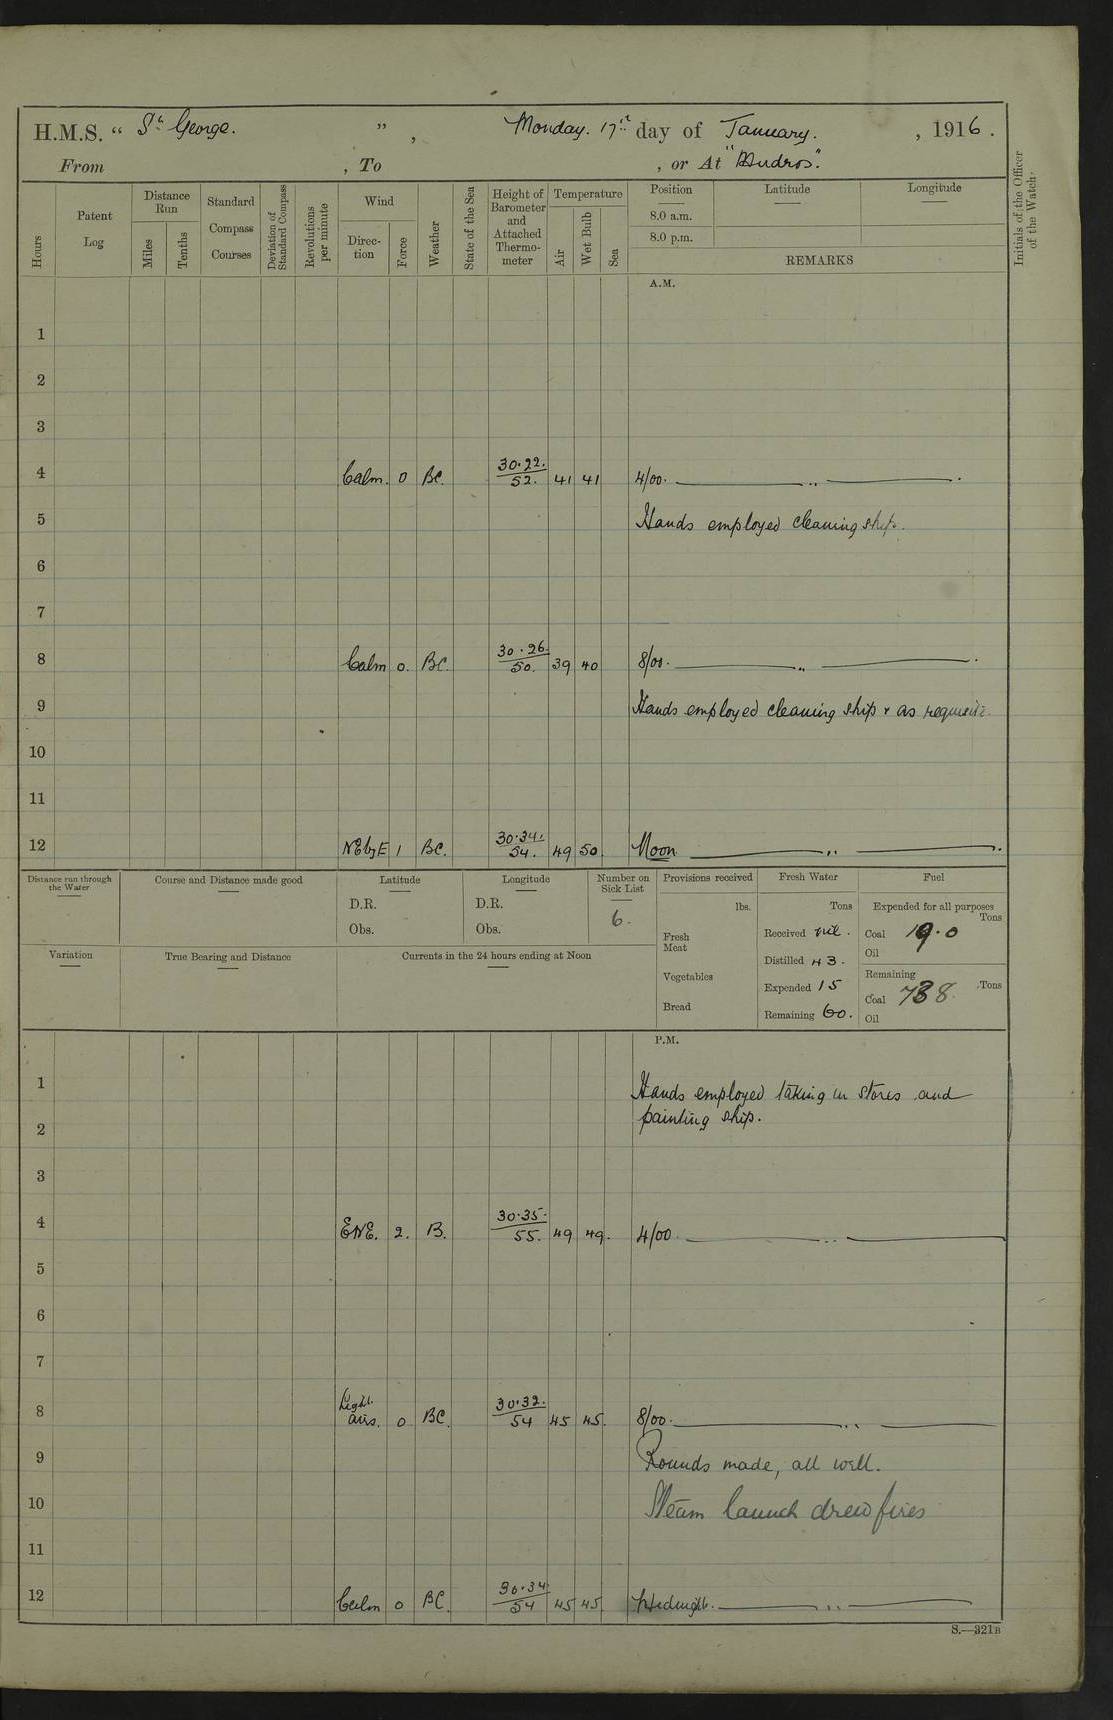 H.M.S. " St George. ", Monday. 17th day of January. , 1916.
From , To , or At "Mudros".
Hours
Patent Log
Distance Run
Miles
Tenths
Standard Compass Courses
Deviation of Standard Compass
Revolutions per minute
Wind
Direction
Force
Weather
State of the Sea
Height of Barometer and Attached Thermometer
Temperature
Air
Wet Bulb
Sea
Position Latitude Longitude
8.0 a.m.
8.0 p.m.
REMARKS
Initials of the Officer of the Watch
A.M.
1
2
3
4 Calm. 0 BC. 30.22. 52. 41 41 4/00. ,, .
5 Hands employed cleaning ship.
6
7
8 Calm 0. BC. 30.26. 50. 39 40 8/00. ,, .
9 Hands employed cleaning ship & as requisite.
10
11
12 NEbyE 1 BC. 30.34. 54. 49 50. Noon ,, .
Distance run through the Water
Course and Distance made good
Latitude
D.R.
Obs.
Longitude
D.R.
Obs.
Number on Sick List
6.
Provisions received
lbs.
Fresh Meat
Vegetables
Bread
Fresh Water
Tons
Received nil.
Distilled 43.
Expended 15
Remaining 60.
Fuel
Expended for all purposes
Tons
Coal 19.0
Oil
Remaining
Tons
Coal 738.
Oil
Variation
True Bearing and Distance
Currents in the 24 hours ending at Noon
P.M.
1 Hands employed taking in stores and
2 painting ship.
3
4 ENE. 2. B. 30.35. 55. 49 49. 4/00. ,,
5
6
7
8 Light airs. 0 BC. 30.32. 54 45 45. 8/00. ,,
9 Rounds made, all well.
10 Steam launch drew fires
11
12 Calm 0 BC. 30.34 54 45 45. Midnight. ,,
S.—321B